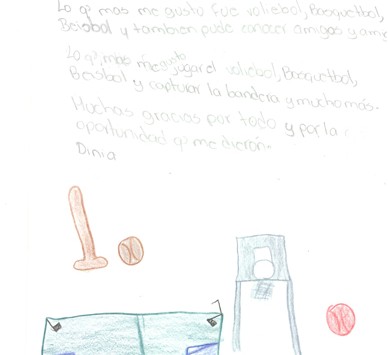 Lo q' mas me gusto fue voliebol, Basquetbol,
Beisbol y tambien pude conocer amigos y amig
Lo q' mas me gusto jugar el voliebol, Basquetbol,
Beisbol y capturar la bandera y mucho más.
Muchas gracias por todo y por la
oportunidad q' me dieron.
Dinia